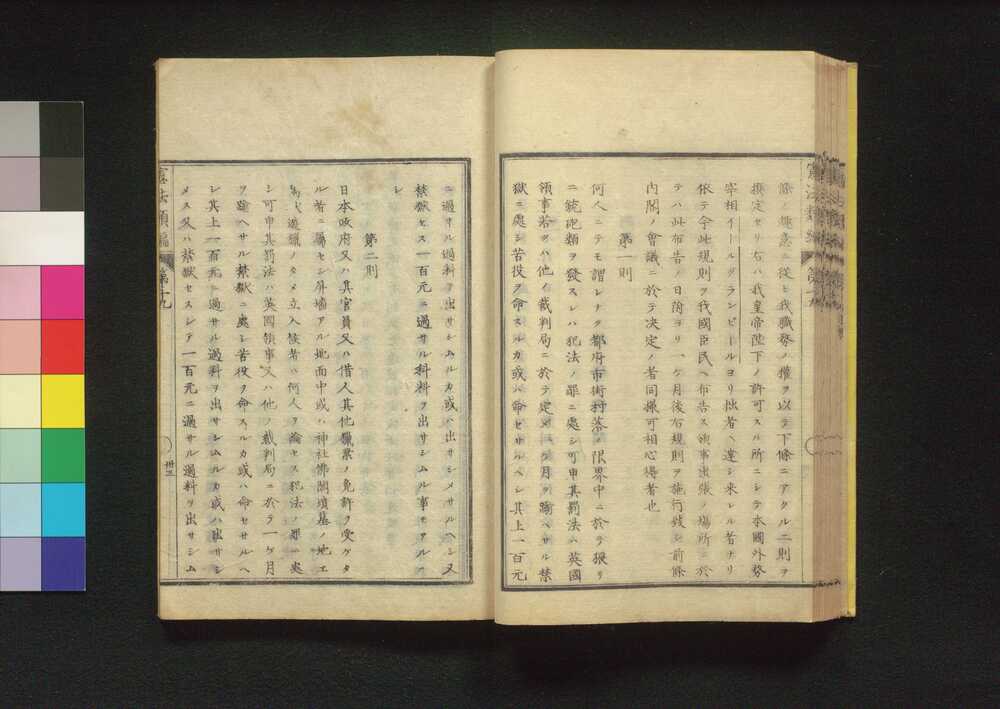 條ノ趣意ニ從ヒ我職務ノ權ヲ以テ下條ニアクル二則ヲ
撰定セリ右ハ我皇帝陛下ノ許可スル所ニシテ本國外務
宰相イールグランビールヨリ拙者ヘ達シ来レル者ナリ
依テ今此規則ヲ我國臣民ヘ布告ス領事出張ノ場所ニ於
テハ此布告ノ日附ヨリ一ケ月後右規則ヲ施行致シ前條
内閣ノ會議ニ於テ决定ノ者同據可相心得者也
第一則
何人ニテモ謂レナク都府市街村落ノ限界中ニ於テ猥リ
ニ銃砲類ヲ發スレハ犯法ノ罪ニ處シ可申其罰法ハ英國
領事若クハ他ノ裁判局ニ於テ定メ一ケ月ヲ踰ヘサル禁
獄ニ處シ苦役ヲ命スルカ或ハ命セサルヘシ其上一百元
ニ過サル過料ヲ出サシムルカ或ハ出サシメサルヘシ又
禁獄セス一百元ニ過サル科料ヲ出サシムル事モアルヘ
シ
第二則
日本政府又ハ其官員又ハ借人其他獵業ノ免許ヲ受ケタ
ル者ニ屬セシ屏墻アル地面中或ハ神社佛閣墳墓ノ地エ
鳥獸遊獵ノタメ立入候者ハ何人ヲ論セス犯法ノ罪ニ處
シ可申其罰法ハ英國領事又ハ他ノ裁判局ニ於テ一ケ月
ヲ踰ヘサル禁獄ニ處シ苦役ヲ命スルカ或ハ命セサルヘ
シ其上一百元ニ過サル過料ヲ出サシムルカ或ハ出サシ
メス又ハ禁獄セスシテ一百元ニ過サル過料ヲ出サシム
憲法類編 第十九
卅三